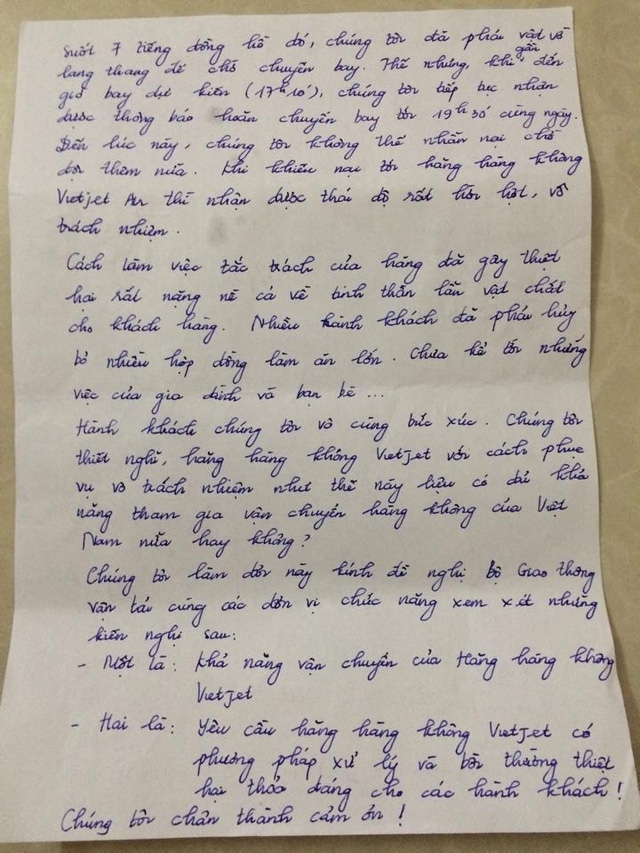 Suốt 7 tiếng đồng hồ đó, chúng tôi đã phải vật vờ
lang thang để chờ chuyến bay. Thế nhưng, khi gần đến
giờ bay dự kiến (17h10'), chúng tôi tiếp tục nhận
được thông báo hoãn chuyến bay tới 19h30' cùng ngày.
Đến lúc này, chúng tôi không thể nhẫn nại chờ
đợi thêm nữa. Khi khiếu nại tới hãng hàng không
Vietjet Air thì nhận được thái độ rất hời hợt, vô
trách nhiệm.
Cách làm việc tắc trách của hãng đã gây thiệt
hại rất nặng nề cả về tinh thần lẫn vật chất
cho khách hàng. Nhiều hành khách đã phải hủy
bỏ nhiều hợp đồng làm ăn lớn. Chưa kể tới những
việc của gia đình và bạn bè...
Hành khách chúng tôi vô cùng bức xúc. Chúng tôi
thiết nghĩ, hãng hàng không Vietjet với cách phục
vụ vô trách nhiệm như thế này liệu có đủ khả
năng tham gia vận chuyển hàng không của Việt
Nam nữa hay không?
Chúng tôi làm đơn này kính đề nghị bộ Giao thông
vận tải cùng các đơn vị chức năng xem xét những
kiến nghị sau:
- Một là: Khả năng vận chuyển của Hãng hàng không
Vietjet
- Hai là: Yêu cầu hãng hàng không Vietjet có
phương pháp xử lý và bồi thường thiệt
hại thỏa đáng cho các hành khách!
Chúng tôi chân thành cảm ơn!